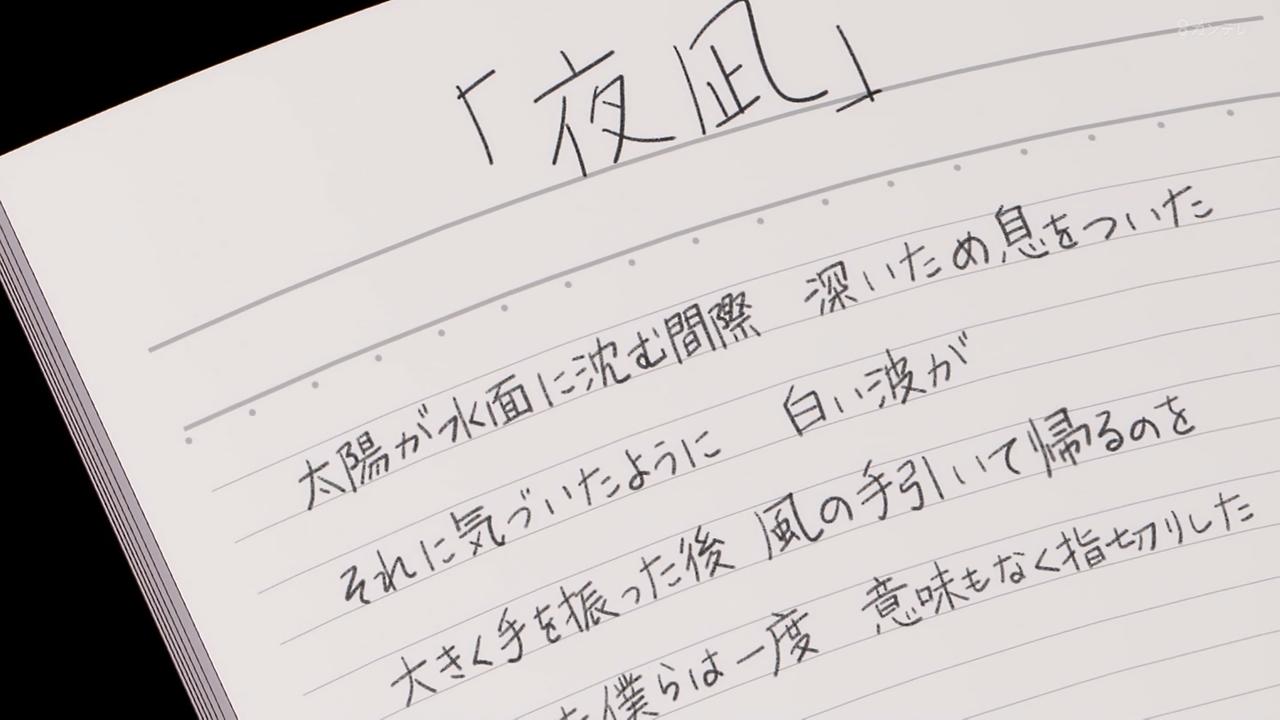 カンテレ
「夜凪」
太陽が水面に沈む間際 深いため息をついた
それに気づいたように 白い波が
大きく手を振った後 風の手引いて帰るのを
僕らは一度 意味もなく指切りした